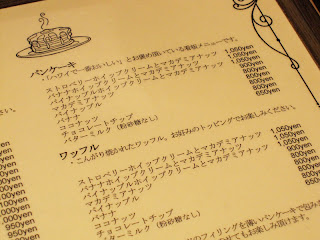 パンケーキ
「ハワイで一番おいしい」とお褒め頂いている看板メニューです。
ストロベリーホイップクリームとマカデミアナッツ 1,050yen
バナナホイップクリームとマカデミアナッツ 1,050yen
パイナップルホイップクリームとマカデミアナッツ 1,050yen
マカデミアナッツ
パイナップル 800yen
バナナ 800yen
ココナッツ 800yen
チョコレートチップ 800yen
バターミルク(粉砂糖なし) 650yen
ワッフル
・こんがり焼かれたワッフル。お好みのトッピングでお楽しみください。
ストロベリーホイップクリームとマカデミアナッツ 1,050yen
バナナホイップクリームとマカデミアナッツ 1,050yen
パイナップルホイップクリームとマカデミアナッツ 1,050yen
マカデミアナッツ
パイナップル 800yen
バナナ 800yen
ココナッツ 800yen
チョコレートチップ
バターミルク(粉砂糖なし)
のフィリングを薄いパンケーキで包み
てもお楽しみ頂けます。